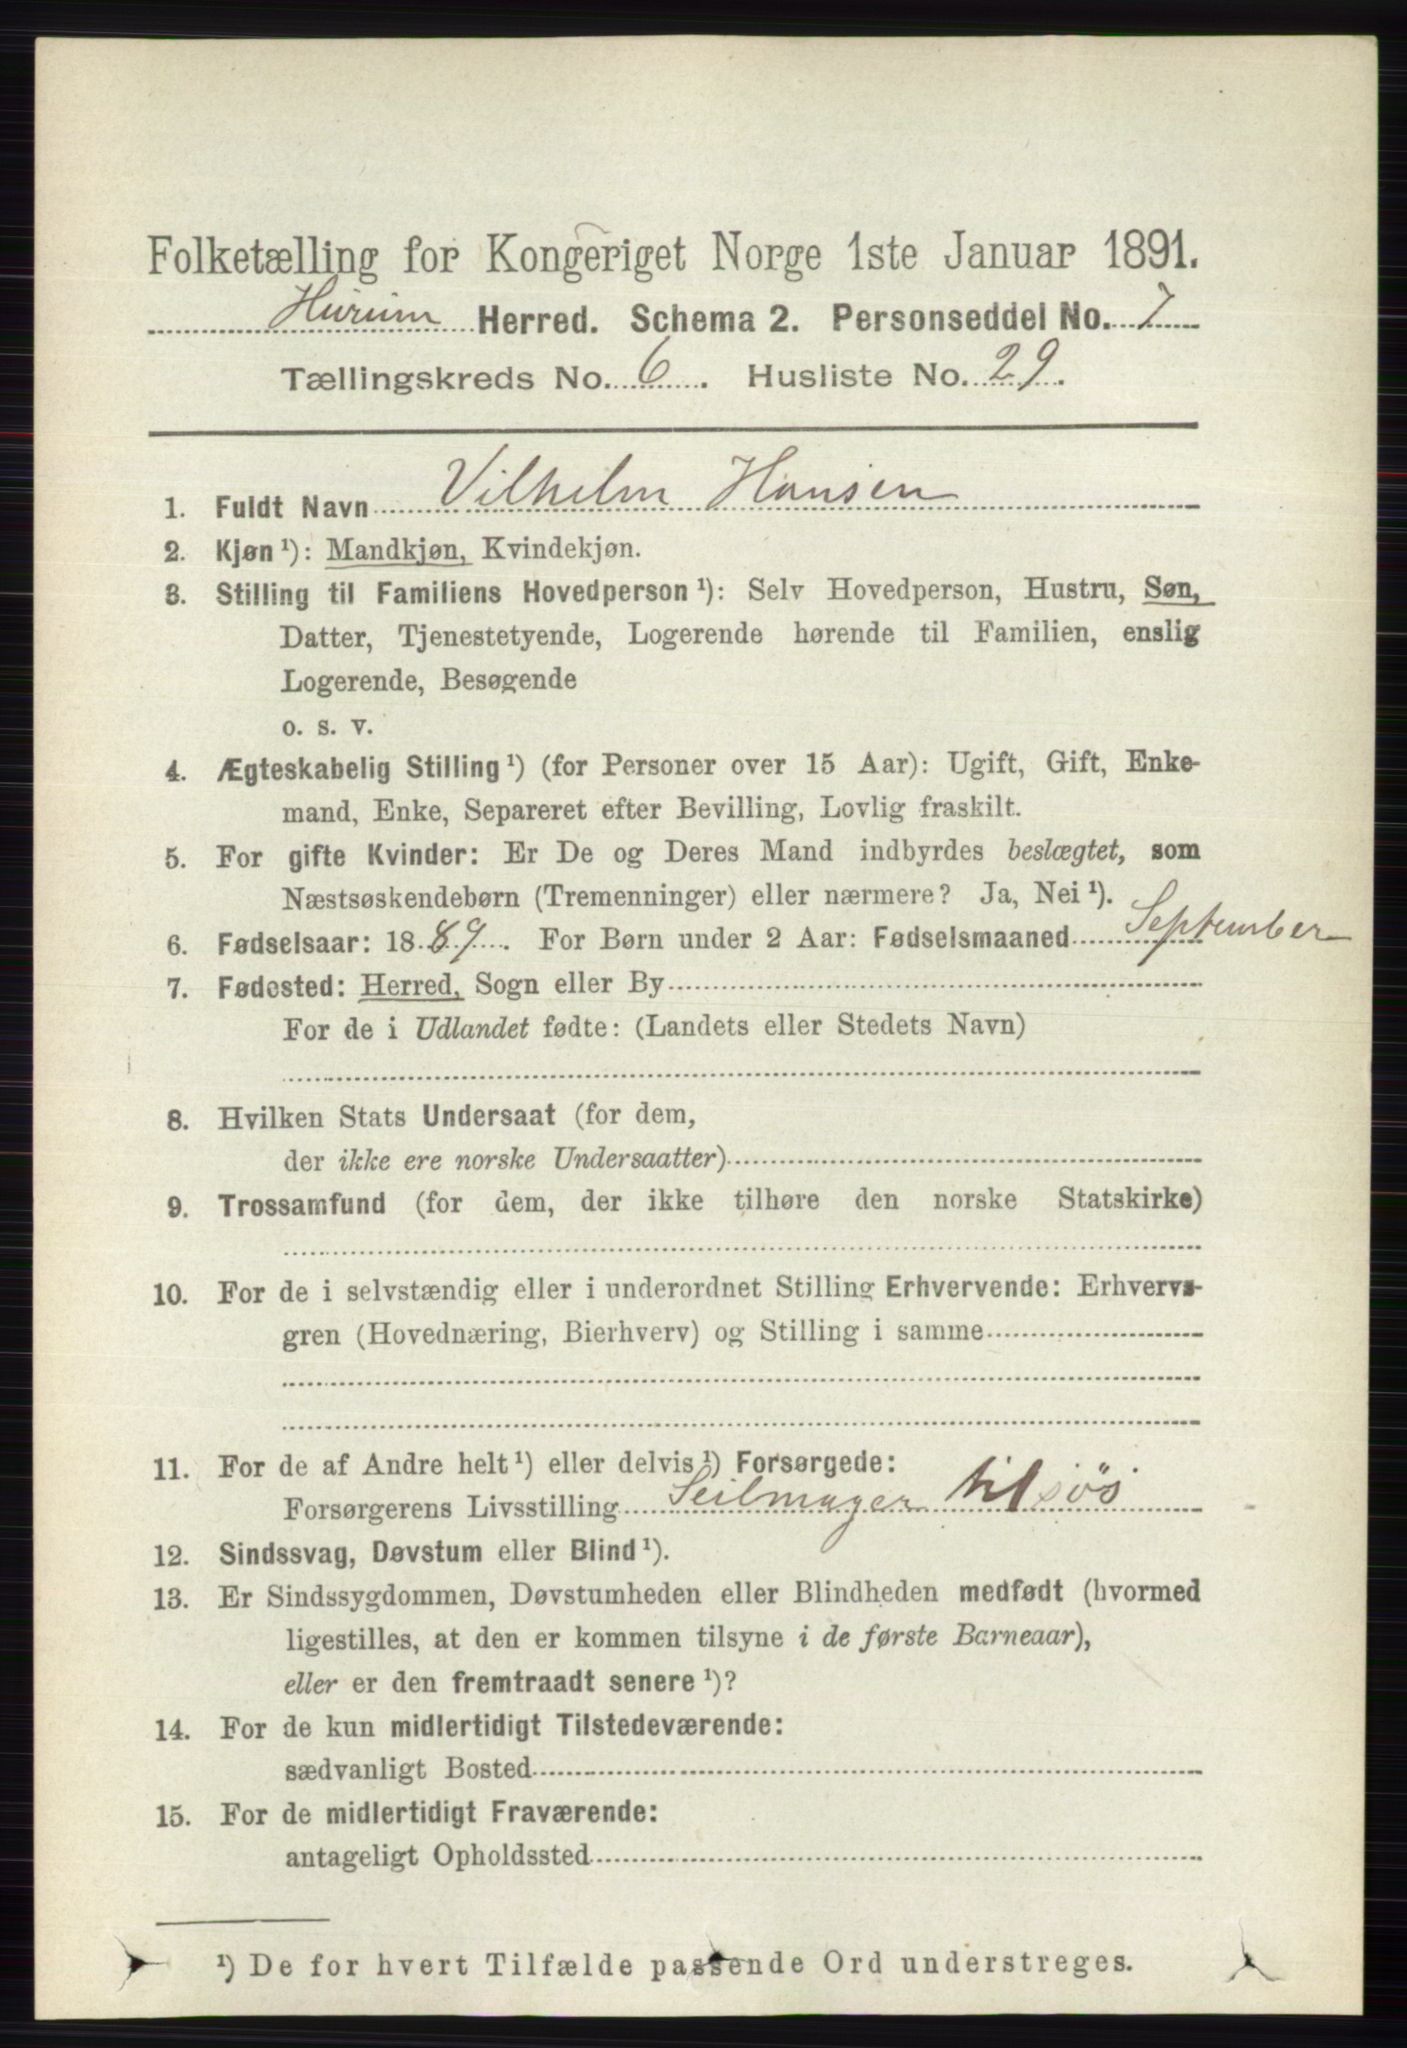 Folketælling for Kongeriget Norge 1ste Januar 1891.
Hurum Herred. Schema 2. Personseddel No. 7
Tællingskreds No. 6. Husliste No. 29.
1. Fuldt Navn Vilhelm Hansen
2. Kjøn ¹): Mandkjøn, Kvindekjøn.
3. Stilling til Familiens Hovedperson ¹): Selv Hovedperson, Hustru, Søn,
Datter, Tjenestetyende, Logerende hørende til Familien, enslig
Logerende, Besøgende
o. s. v.
4. Ægteskabelig Stilling ¹) (for Personer over 15 Aar): Ugift, Gift, Enke-
mand, Enke, Separeret efter Bevilling, Lovlig fraskilt.
5. For gifte Kvinder: Er De og Deres Mand indbyrdes beslægtet, som
Næstsøskendebørn (Tremenninger) eller nærmere? Ja, Nei ¹).
6. Fødselsaar: 1889. For Børn under 2 Aar: Fødselsmaaned September
7. Fødested: Herred, Sogn eller By
For de i Udlandet fødte: (Landets eller Stedets Navn)
8. Hvilken Stats Undersaat (for dem,
der ikke ere norske Undersaatter)
9. Trossamfund (for dem, der ikke tilhøre den norske Statskirke)
10. For de i selvstændig eller i underordnet Stilling Erhvervende: Erhvervs-
gren (Hovednæring, Bierhverv) og Stilling i samme
11. For de af Andre helt ¹) eller delvis ¹) Forsørgede:
Forsørgerens Livsstilling Seilmager til søs
12. Sindssvag, Døvstum eller Blind ¹).
13. Er Sindssygdommen, Døvstumheden eller Blindheden medfødt (hvormed
ligestilles, at den er kommen tilsyne i de første Barneaar),
eller er den fremtraadt senere ¹)?
14. For de kun midlertidigt Tilstedeværende:
sædvanligt Bosted
15. For de midlertidigt Fraværende:
antageligt Opholdssted
¹) De for hvert Tilfælde passende Ord understreges.